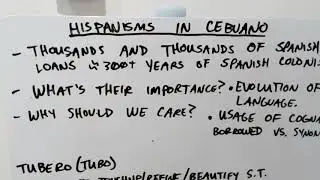 HISPANISMS IN CEBUANO
- THOUSANDS AND THOUSANDS OF SPANISH
LOANS 300+ YEARS OF SPANISH COLONI
- WHAT'S THEIR IMPORTANCE? • EVOLUTION OF
LANGUAGE.
- WHY SHOULD WE CARE? • USAGE OF COGNA
BORROWED VS. SYNON
TUBERO (TUBO)
/REFINE/BEAUTIFY S.T.